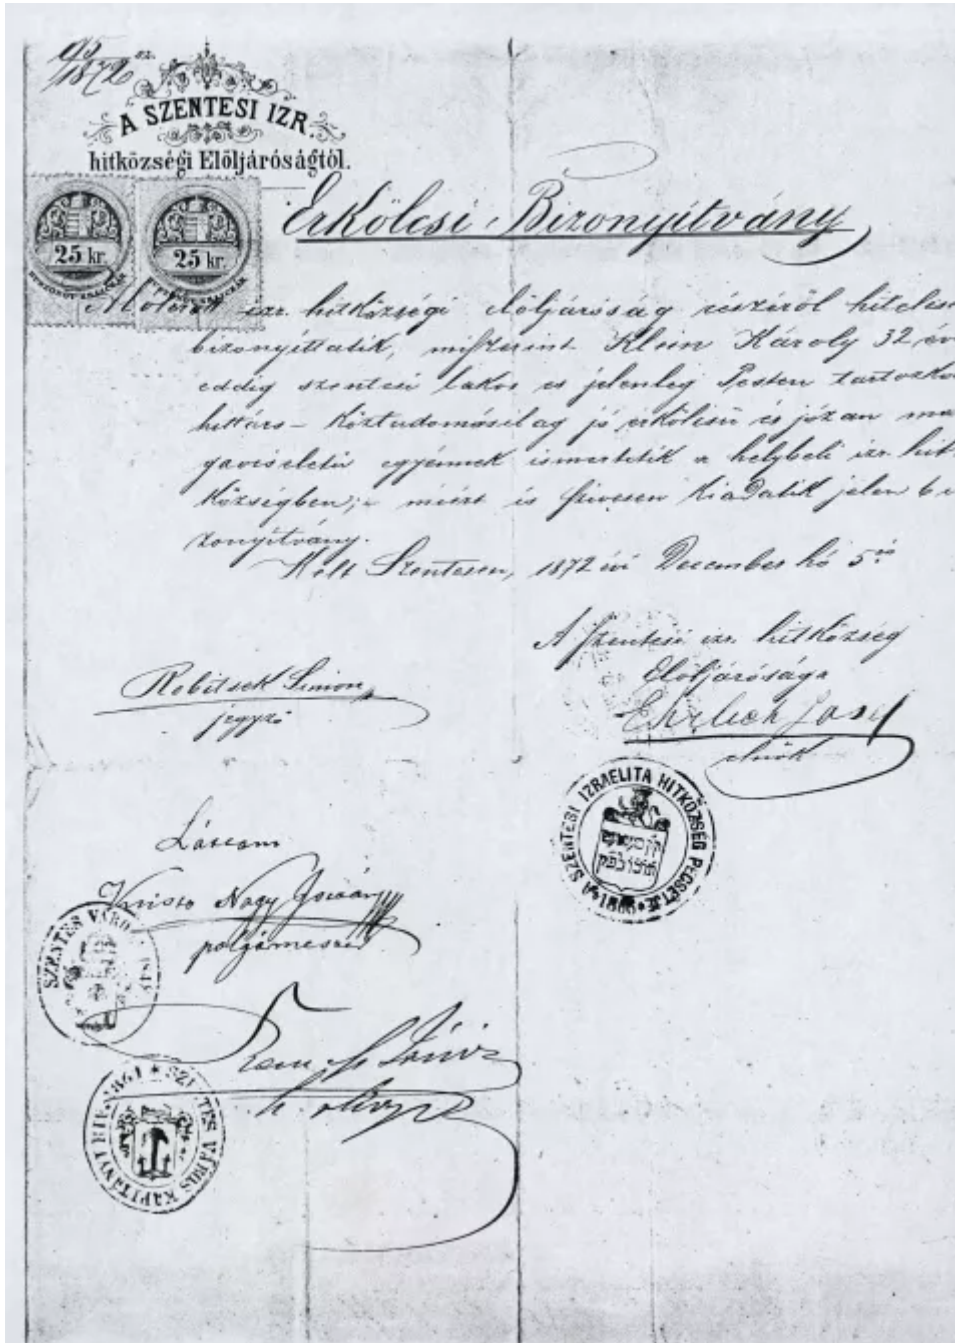 95
1872 sz.
A SZENTESI IZR.
hitközségi Előljáróságtól.
Erkölcsi Bizonyítvány
25 kr. 25 kr.
izr. hitközségi előljáróság részéről hitelese
bizonyíttatik, miszerint Klein Károly 32 év
eddig szentesi lakos és jelenleg Pesten tartozko
hittárs – köztudomásilag jó erkölcsü és józan ma
gaviseletü egyénnek ismertetik a helybeli izr. hit
községben; miért is szivesen kiadatik jelen bi
zonyítvány.
Kelt Szentesen, 1872 évi December hó 5én
A szentesi izr. hitközség
Előljárósága
Robitsek Simon
jegyző
Ehrlich Josef
elnök
A SZENTESI IZRAELITA HITKÖZSÉG PECSÉTJE
Láttam
Kristó Nagy István
polgármester
SZENTES VÁROS
János
SZENTES VÁROS KAPITÁNYI HIVATALA